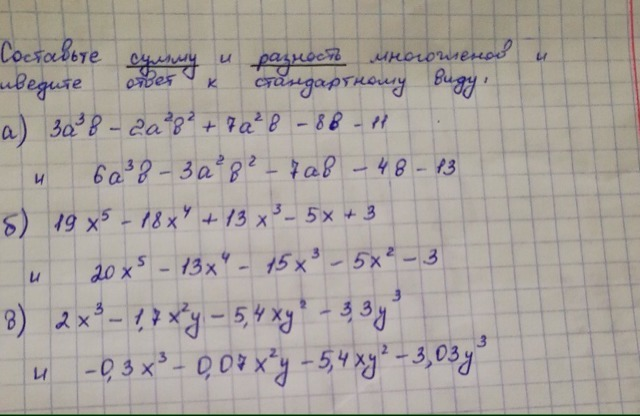 Составьте сумму и разность многочленов и
иведите ответ к стандартному виду.
а) 3a³b - 2a²b² + 7a²b - 8b - 11
и 6a³b - 3a²b² - 7ab - 4b - 13
б) 19x⁵ - 18x⁴ + 13x³ - 5x + 3
и 20x⁵ - 13x⁴ - 15x³ - 5x² - 3
в) 2x³ - 1,7x²y - 5,4xy² - 3,3y³
и -0,3x³ - 0,07x²y - 5,4xy² - 3,03y³